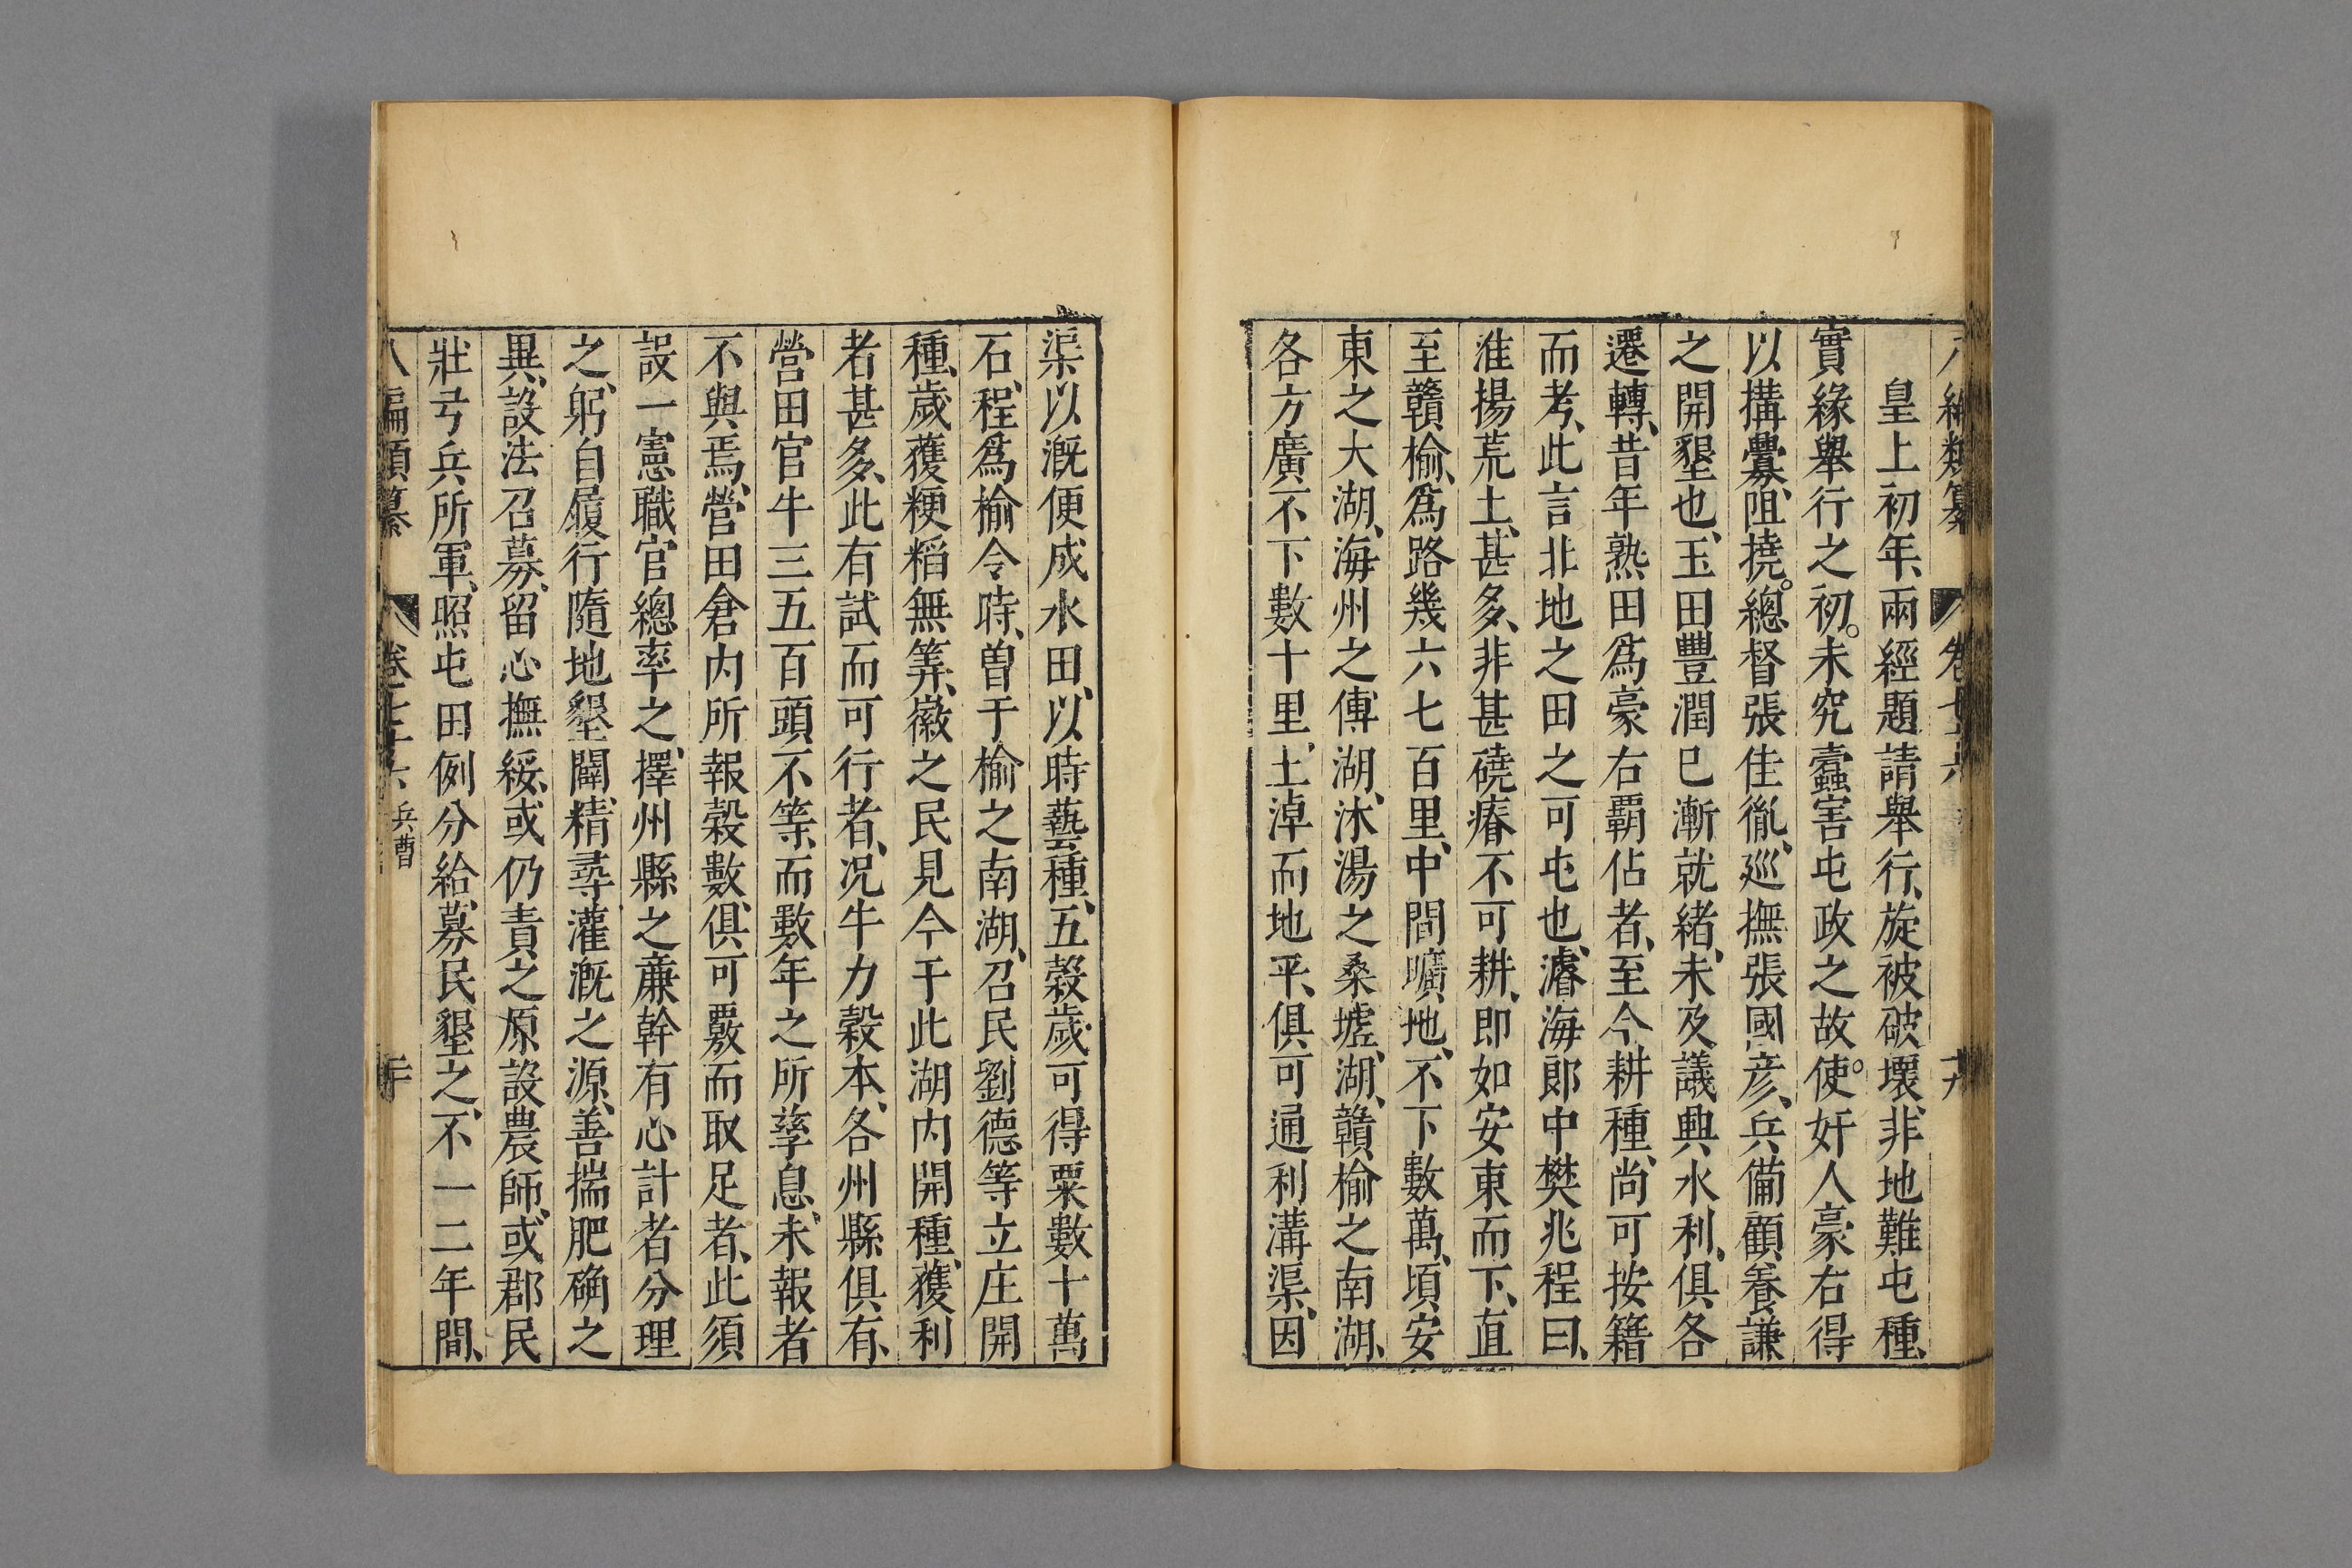 八編類纂 卷七十六 十九
皇上初年、兩經題請舉行、旋被破壞、非地難屯種、
實緣舉行之初。未究蠹害屯政之故。使奸人豪右得
以搆釁、阻撓。總督張佳胤、巡撫張國彦、兵備顧養謙
之開墾也、玉田豐潤已漸就緒、未及議興水利、俱各
遷轉、昔年熟田爲豪右覇佔者、至今耕種、尚可按籍
而考、此言北地之田之可屯也、濬海郎中樊兆程曰、
淮揚荒土、甚多、非甚磽瘠不可耕、即如安東而下、直
至贛榆、爲路幾六七百里、中間曠地、不下數萬、頃、安
東之大湖、海州之傅湖、沭湯之桑墟、湖、贛榆之南湖、
各方廣不下數十里、土淖而地平、俱可通利溝渠、因
渠以漑便成水田、以時藝種、五穀歲可得粟數十萬
石、程爲榆令時、曽于榆之南湖、召民劉德等立庄開
種、歲獲粳稻無筭、徽之民見今于此湖内開種、獲利
者甚多、此有試而可行者、况牛力穀本、各州縣俱有、
營田官牛三五百頭、不等、而數年之所孳息、未報者
不與焉、營田倉内所報穀數、俱可覈而取足者、此須
設一憲職官總率之、擇州縣之亷幹有心計者分理
之、躬自履行隨地墾闢、精尋灌漑之源、善揣肥确之
異、設法召募、留心撫綏、或仍責之原設農師、或郡民
壯弓兵所軍、照屯田例分給、募民墾之、不一二年間、
八編類纂 卷七十六 兵曹 二十